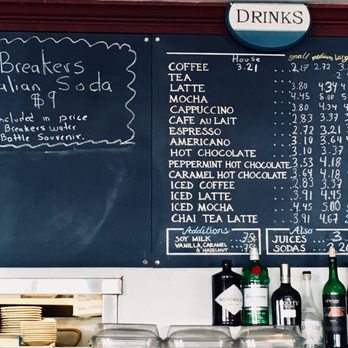 DRINKS
Breakers
alian Soda
$9
ncluded in price
Breakers water
Bottle Souvenir.
House small medium larg
COFFEE 3.21 2.17 2.72 3.
TEA
LATTE 3.80 4.34
MOCHA 4.45 5.00
CAPPUCCINO 3.80 4.34
CAFE AU LAIT 2.83 3.37
ESPRESSO 2.72 3.21
AMERICANO 3.10 3.64
HOT CHOCOLATE 3.10 3.37
PEPPERMINT HOT CHOCOLATE 3.53 4.18
CARAMEL HOT CHOCOLATE 3.64 4.18
ICED COFFEE 2.83 3.37
ICED LATTE 3.91 4.45
ICED MOCHA 4.45 5.00
CHAI TEA LATTE 3.91 4.67
Additions
SOY MILK .75
VANILLA, CARAMEL
& HAZELNUT .75
Also
JUICES 3
SODAS 2.
HENDRICK'S